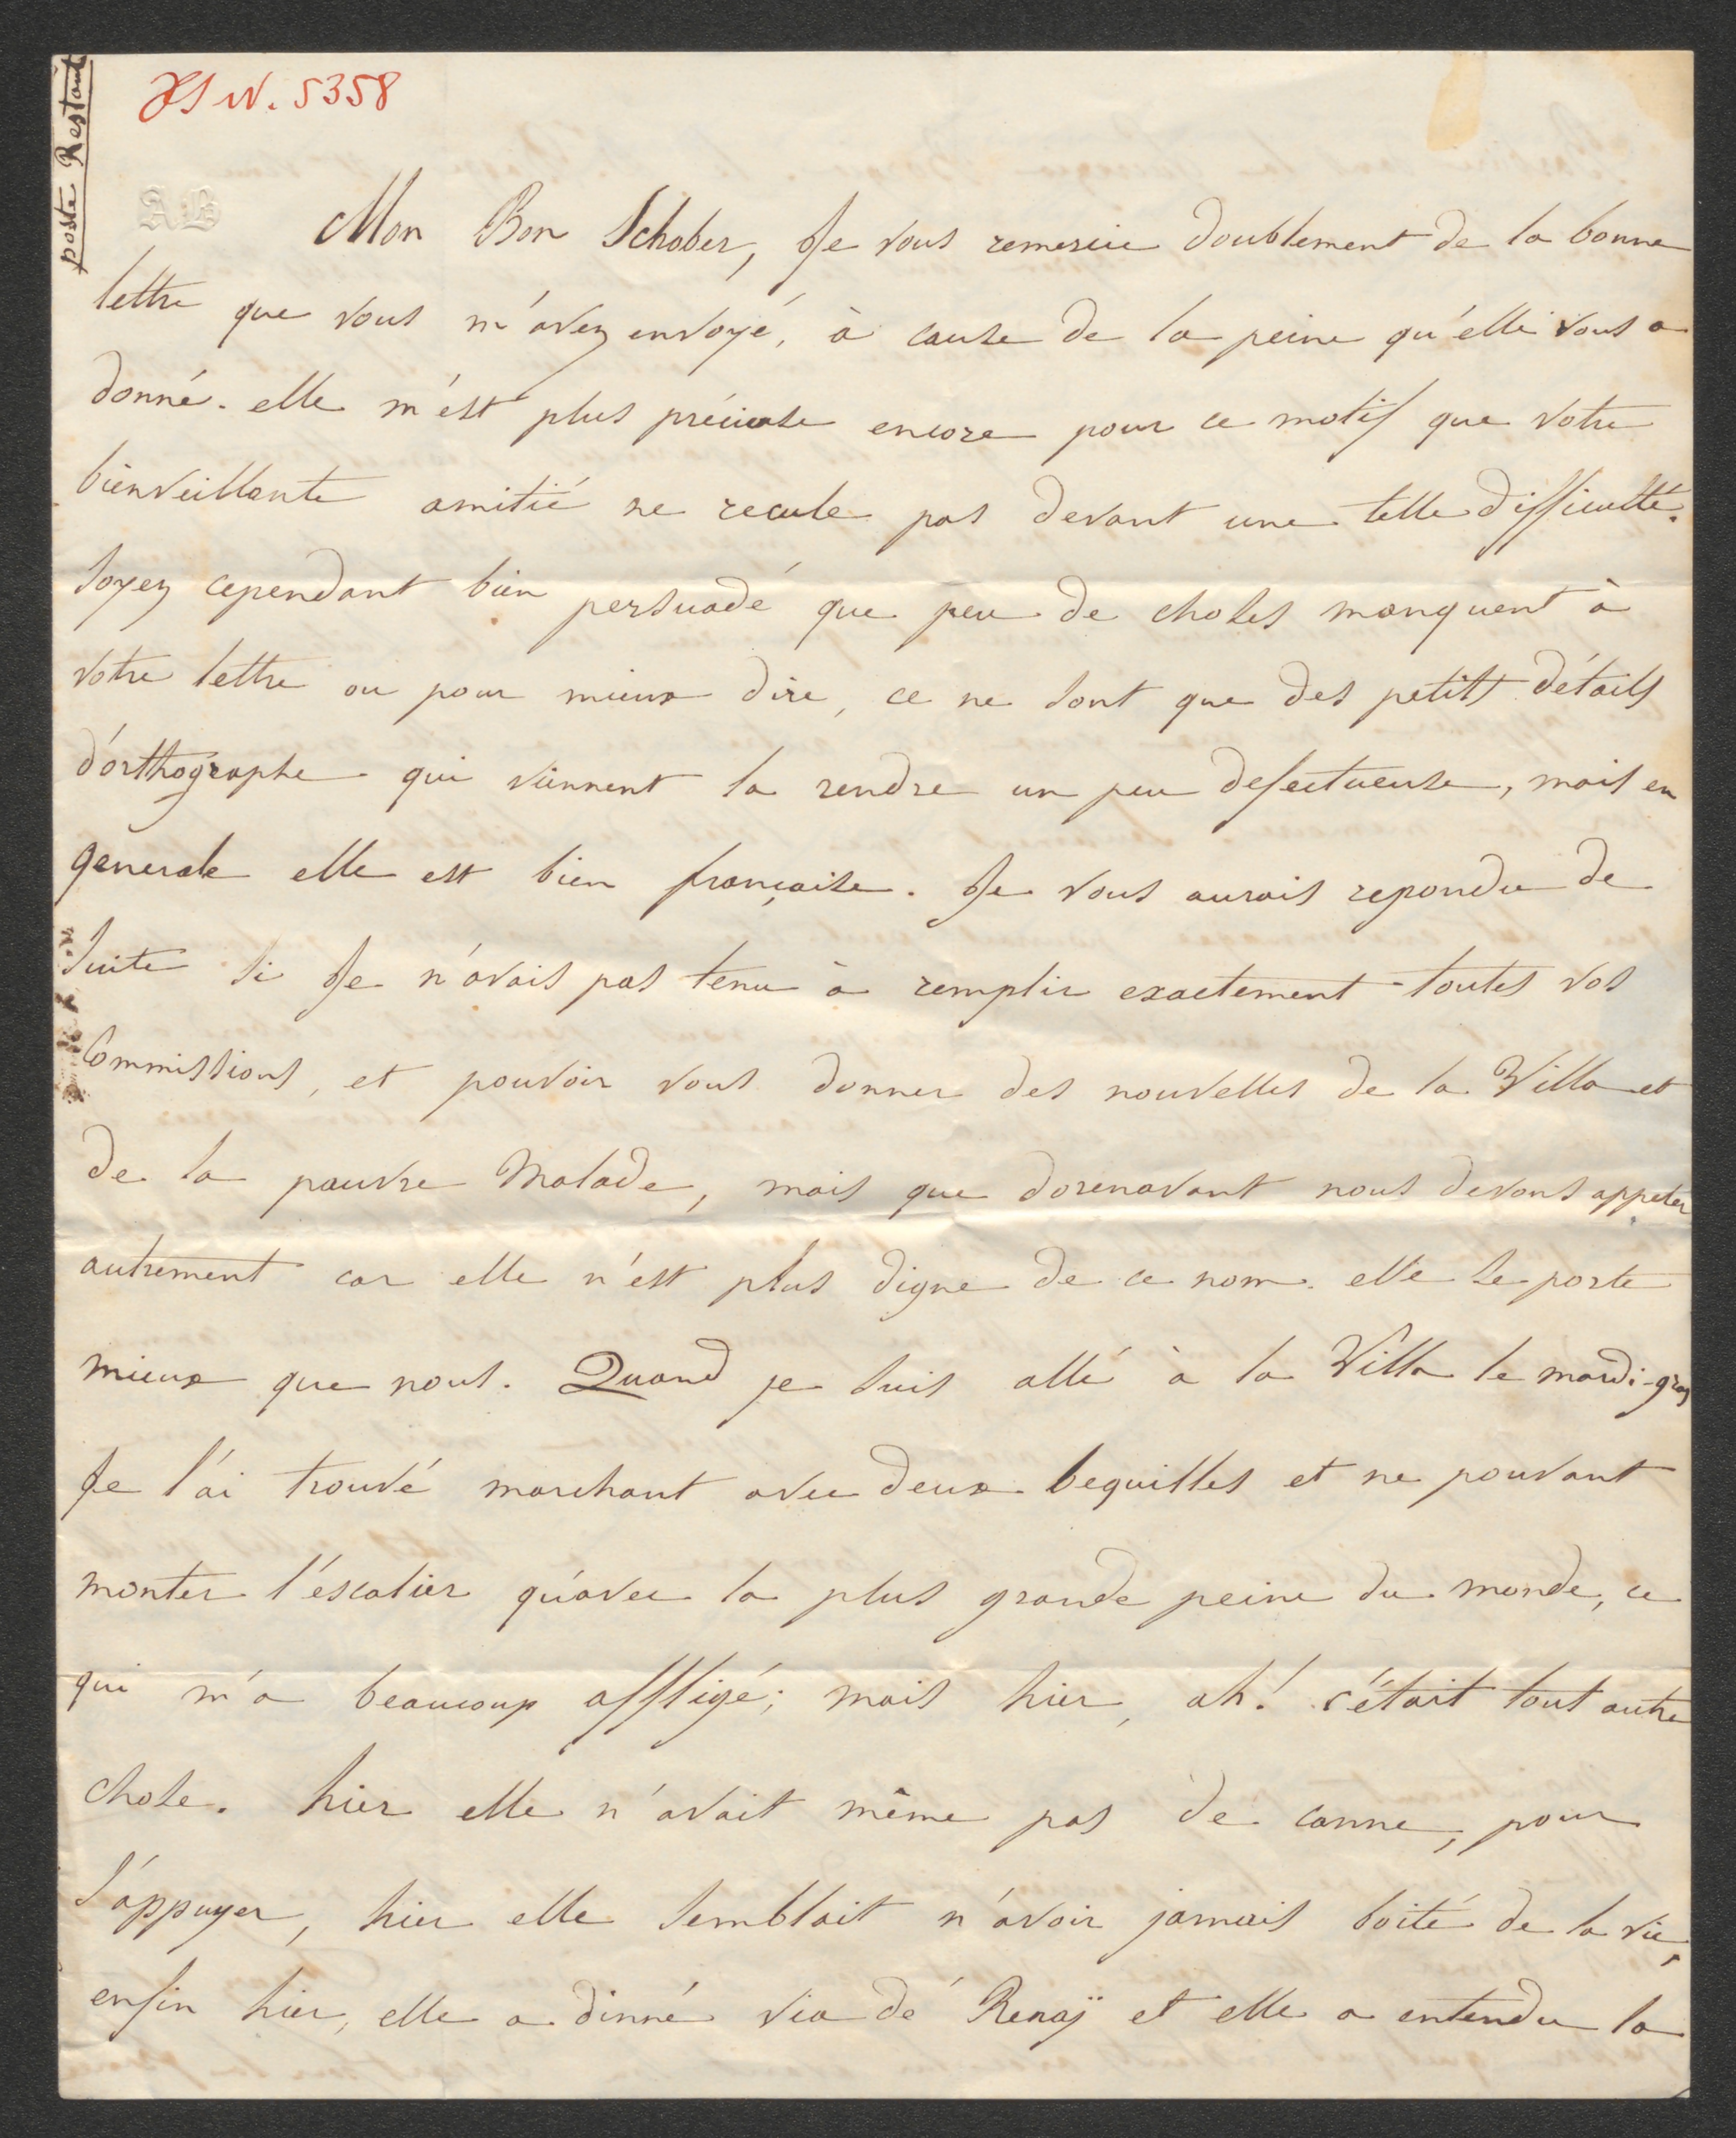 poste Restant
JS N. 5358
AB
Mon Bon Schober, Je vous remercie doublement de la bonne
lettre que vous m'avez envoyé, à cause de la peine qu'elle vous a
donné. elle m'est plus préciuse encore pour ce motif que votre
bienveillante amitié ne recule pas devant une telle difficulté.
Soyez cependant bien persuadé que peu de choses manquent à
votre lettre ou pour mieux dire, ce ne sont que des petits détails
d'orthographe qui viennent la rendre un peu defectueuse, mais en
generale elle est bien française. Je vous aurais repondu de
suite si Je n'avais pas tenu à remplir exactement toutes vos
Commissions, et pouvoir vous donner des nouvelles de la Villa et
de la pauvre Malade, mais que dorenavant nous devons appeler
autrement car elle n'est plus digne de ce nom. elle se porte
mieux que nous. Quand je suis allé à la Villa le mardi-gras
Je l'ai trouvé marchant avec deux bequilles et ne pouvant
monter l'escalier qu'avec la plus grande peine du monde, ce
qui m'a beaucoup affligé; mais hier, ah! c'était tout autre
chose. hier elle n'avait même pas de canne, pour
s'appuyer, hier elle semblait n'avoir jamais boité de la vie,
enfin hier, elle a dinné via de' Renaj et elle a entendu la